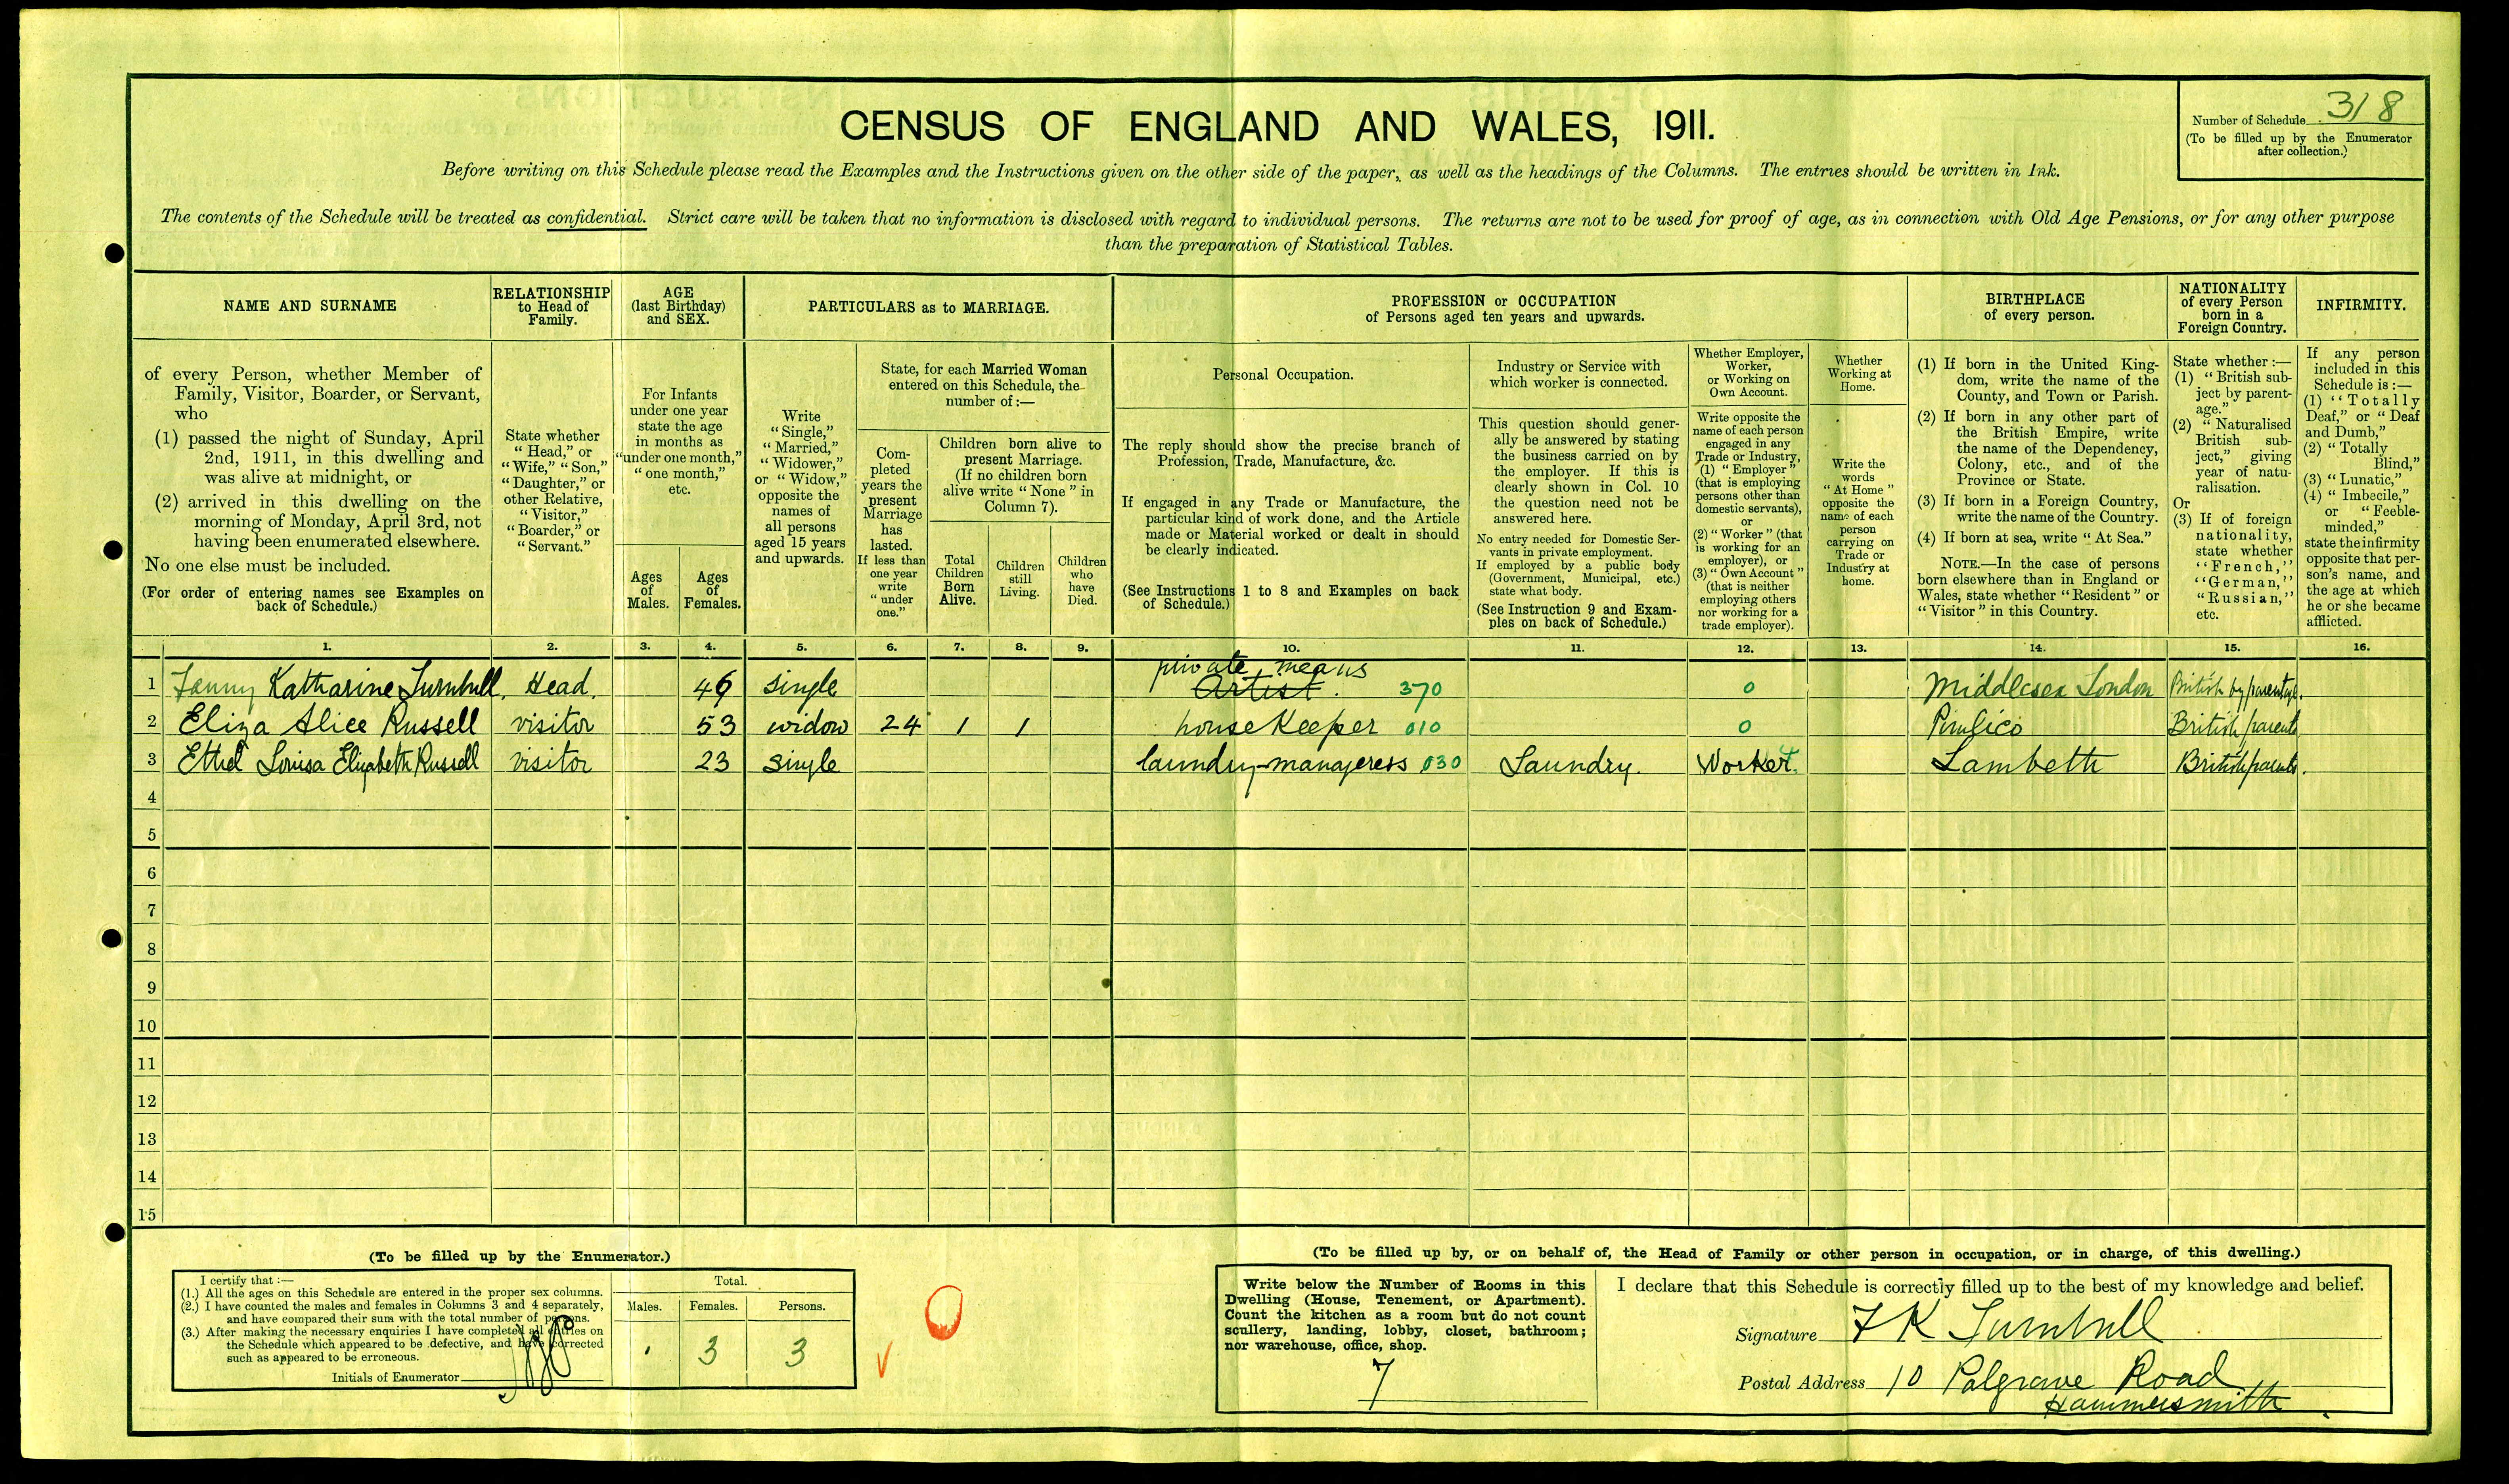 CENSUS OF ENGLAND AND WALES, 1911.
Number of Schedule 318
(To be filled up by the Enumerator
after collection.)
Before writing on this Schedule please read the Examples and the Instructions given on the other side of the paper, as well as the headings of the Columns. The entries should be written in Ink.
The contents of the Schedule will be treated as confidential. Strict care will be taken that no information is disclosed with regard to individual persons. The returns are not to be used for proof of age, as in connection with Old Age Pensions, or for any other purpose
than the preparation of Statistical Tables.
NAME AND SURNAME
of every Person, whether Member of
Family, Visitor, Boarder, or Servant,
who
(1) passed the night of Sunday, April
2nd, 1911, in this dwelling and
was alive at midnight, or
(2) arrived in this dwelling on the
morning of Monday, April 3rd, not
having been enumerated elsewhere.
No one else must be included.
(For order of entering names see Examples on
back of Schedule.)
RELATIONSHIP
to Head of
Family.
State whether
"Head," or
"Wife," "Son,"
"Daughter," or
other Relative,
"Visitor,"
"Boarder," or
"Servant."
AGE
(last Birthday)
and SEX.
For Infants
under one year
state the age
in months as
"under one month,"
"one month,"
etc.
Ages
of
Males.
Ages
of
Females.
PARTICULARS as to MARRIAGE.
Write
"Single,"
"Married,"
"Widower,"
or "Widow,"
opposite the
names of
all persons
aged 15 years
and upwards.
State, for each Married Woman
entered on this Schedule, the
number of:—
Com-
pleted
years the
present
Marriage
has
lasted.
If less than
one year
write
"under
one."
Children born alive to
present Marriage.
(If no children born
alive write "None" in
Column 7).
Total
Children
Born
Alive.
Children
still
Living.
Children
who
have
Died.
PROFESSION or OCCUPATION
of Persons aged ten years and upwards.
Personal Occupation.
The reply should show the precise branch of
Profession, Trade, Manufacture, &c.
If engaged in any Trade or Manufacture, the
particular kind of work done, and the Article
made or Material worked or dealt in should
be clearly indicated.
(See Instructions 1 to 8 and Examples on back
of Schedule.)
Industry or Service with
which worker is connected.
This question should gener-
ally be answered by stating
the business carried on by
the employer. If this is
clearly shown in Col. 10
the question need not be
answered here.
No entry needed for Domestic Ser-
vants in private employment.
If employed by a public body
(Government, Municipal, etc.)
state what body.
(See Instruction 9 and Exam-
ples on back of Schedule.)
Whether Employer,
Worker,
or Working on
Own Account.
Write opposite the
name of each person
engaged in any
Trade or Industry,
(1) "Employer"
(that is employing
persons other than
domestic servants),
or
(2) "Worker" (that
is working for an
employer), or
(3) "Own Account"
(that is neither
employing others
nor working for a
trade employer).
Whether
Working at
Home.
Write the
words
"At Home"
opposite the
name of each
person
carrying on
Trade or
Industry at
home.
BIRTHPLACE
of every person.
(1) If born in the United King-
dom, write the name of the
County, and Town or Parish.
(2) If born in any other part of
the British Empire, write
the name of the Dependency,
Colony, etc., and of the
Province or State.
(3) If born in a Foreign Country,
write the name of the Country.
(4) If born at sea, write "At Sea."
NOTE.—In the case of persons
born elsewhere than in England or
Wales, state whether "Resident" or
"Visitor" in this Country.
NATIONALITY
of every Person
born in a
Foreign Country.
State whether:—
(1) "British sub-
ject by parent-
age."
(2) "Naturalised
British sub-
ject," giving
year of natu-
ralisation.
Or
(3) If of foreign
nationality,
state whether
"French,"
"German,"
"Russian,"
etc.
INFIRMITY.
If any person
included in this
Schedule is:—
(1) "Totally
Deaf," or "Deaf
and Dumb,"
(2) "Totally
Blind,"
(3) "Lunatic,"
(4) "Imbecile,"
or "Feeble-
minded,"
state the infirmity
opposite that per-
son's name, and
the age at which
he or she became
afflicted.
1. 2. 3. 4. 5. 6. 7. 8. 9. 10. 11. 12. 13. 14. 15. 16.
private means
1 Fanny Katharine Turnbull. Head. 46 single Artist. 370 0 Middlesex London British by parentage.
2 Eliza Alice Russell visitor 53 widow 24 1 1 housekeeper 010 0 Pimlico British parents
3 Ethel Louisa Elizabeth Russell visitor 23 single laundry-manageress 030 Laundry. Worker. Lambeth British parents.
4
5
6
7
8
9
10
11
12
13
14
15
(To be filled up by the Enumerator.)
I certify that:—
(1.) All the ages on this Schedule are entered in the proper sex columns.
(2.) I have counted the males and females in Columns 3 and 4 separately,
and have compared their sum with the total number of persons.
(3.) After making the necessary enquiries I have completed all entries on
the Schedule which appeared to be defective, and have corrected
such as appeared to be erroneous.
Initials of Enumerator
Total.
Males. Females. Persons.
3 3
(To be filled up by, or on behalf of, the Head of Family or other person in occupation, or in charge, of this dwelling.)
Write below the Number of Rooms in this
Dwelling (House, Tenement, or Apartment).
Count the kitchen as a room but do not count
scullery, landing, lobby, closet, bathroom;
nor warehouse, office, shop.
7
I declare that this Schedule is correctly filled up to the best of my knowledge and belief.
Signature F K Turnbull
Postal Address 10 Palgrave Road
Hammersmith